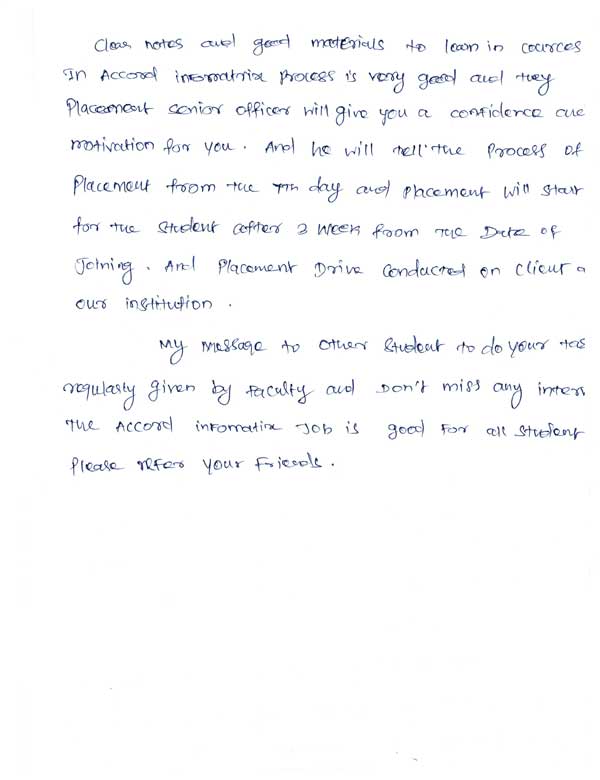 Clear notes and good materials to learn in cources
In Accord infomatrix process is very good and they
Placement senior officer will give you a confidence and
motivation for you. And he will tell the process of
Placement from the 7th day and placement will start
for the student after 3 week from the Date of
Joining. And Placement Drive conducted on client a
our institution.
My message to other student to do your tas
regularly given by faculty and Don't miss any inters
The Accord infomatix Job is good for all student
Please refer your Friends.